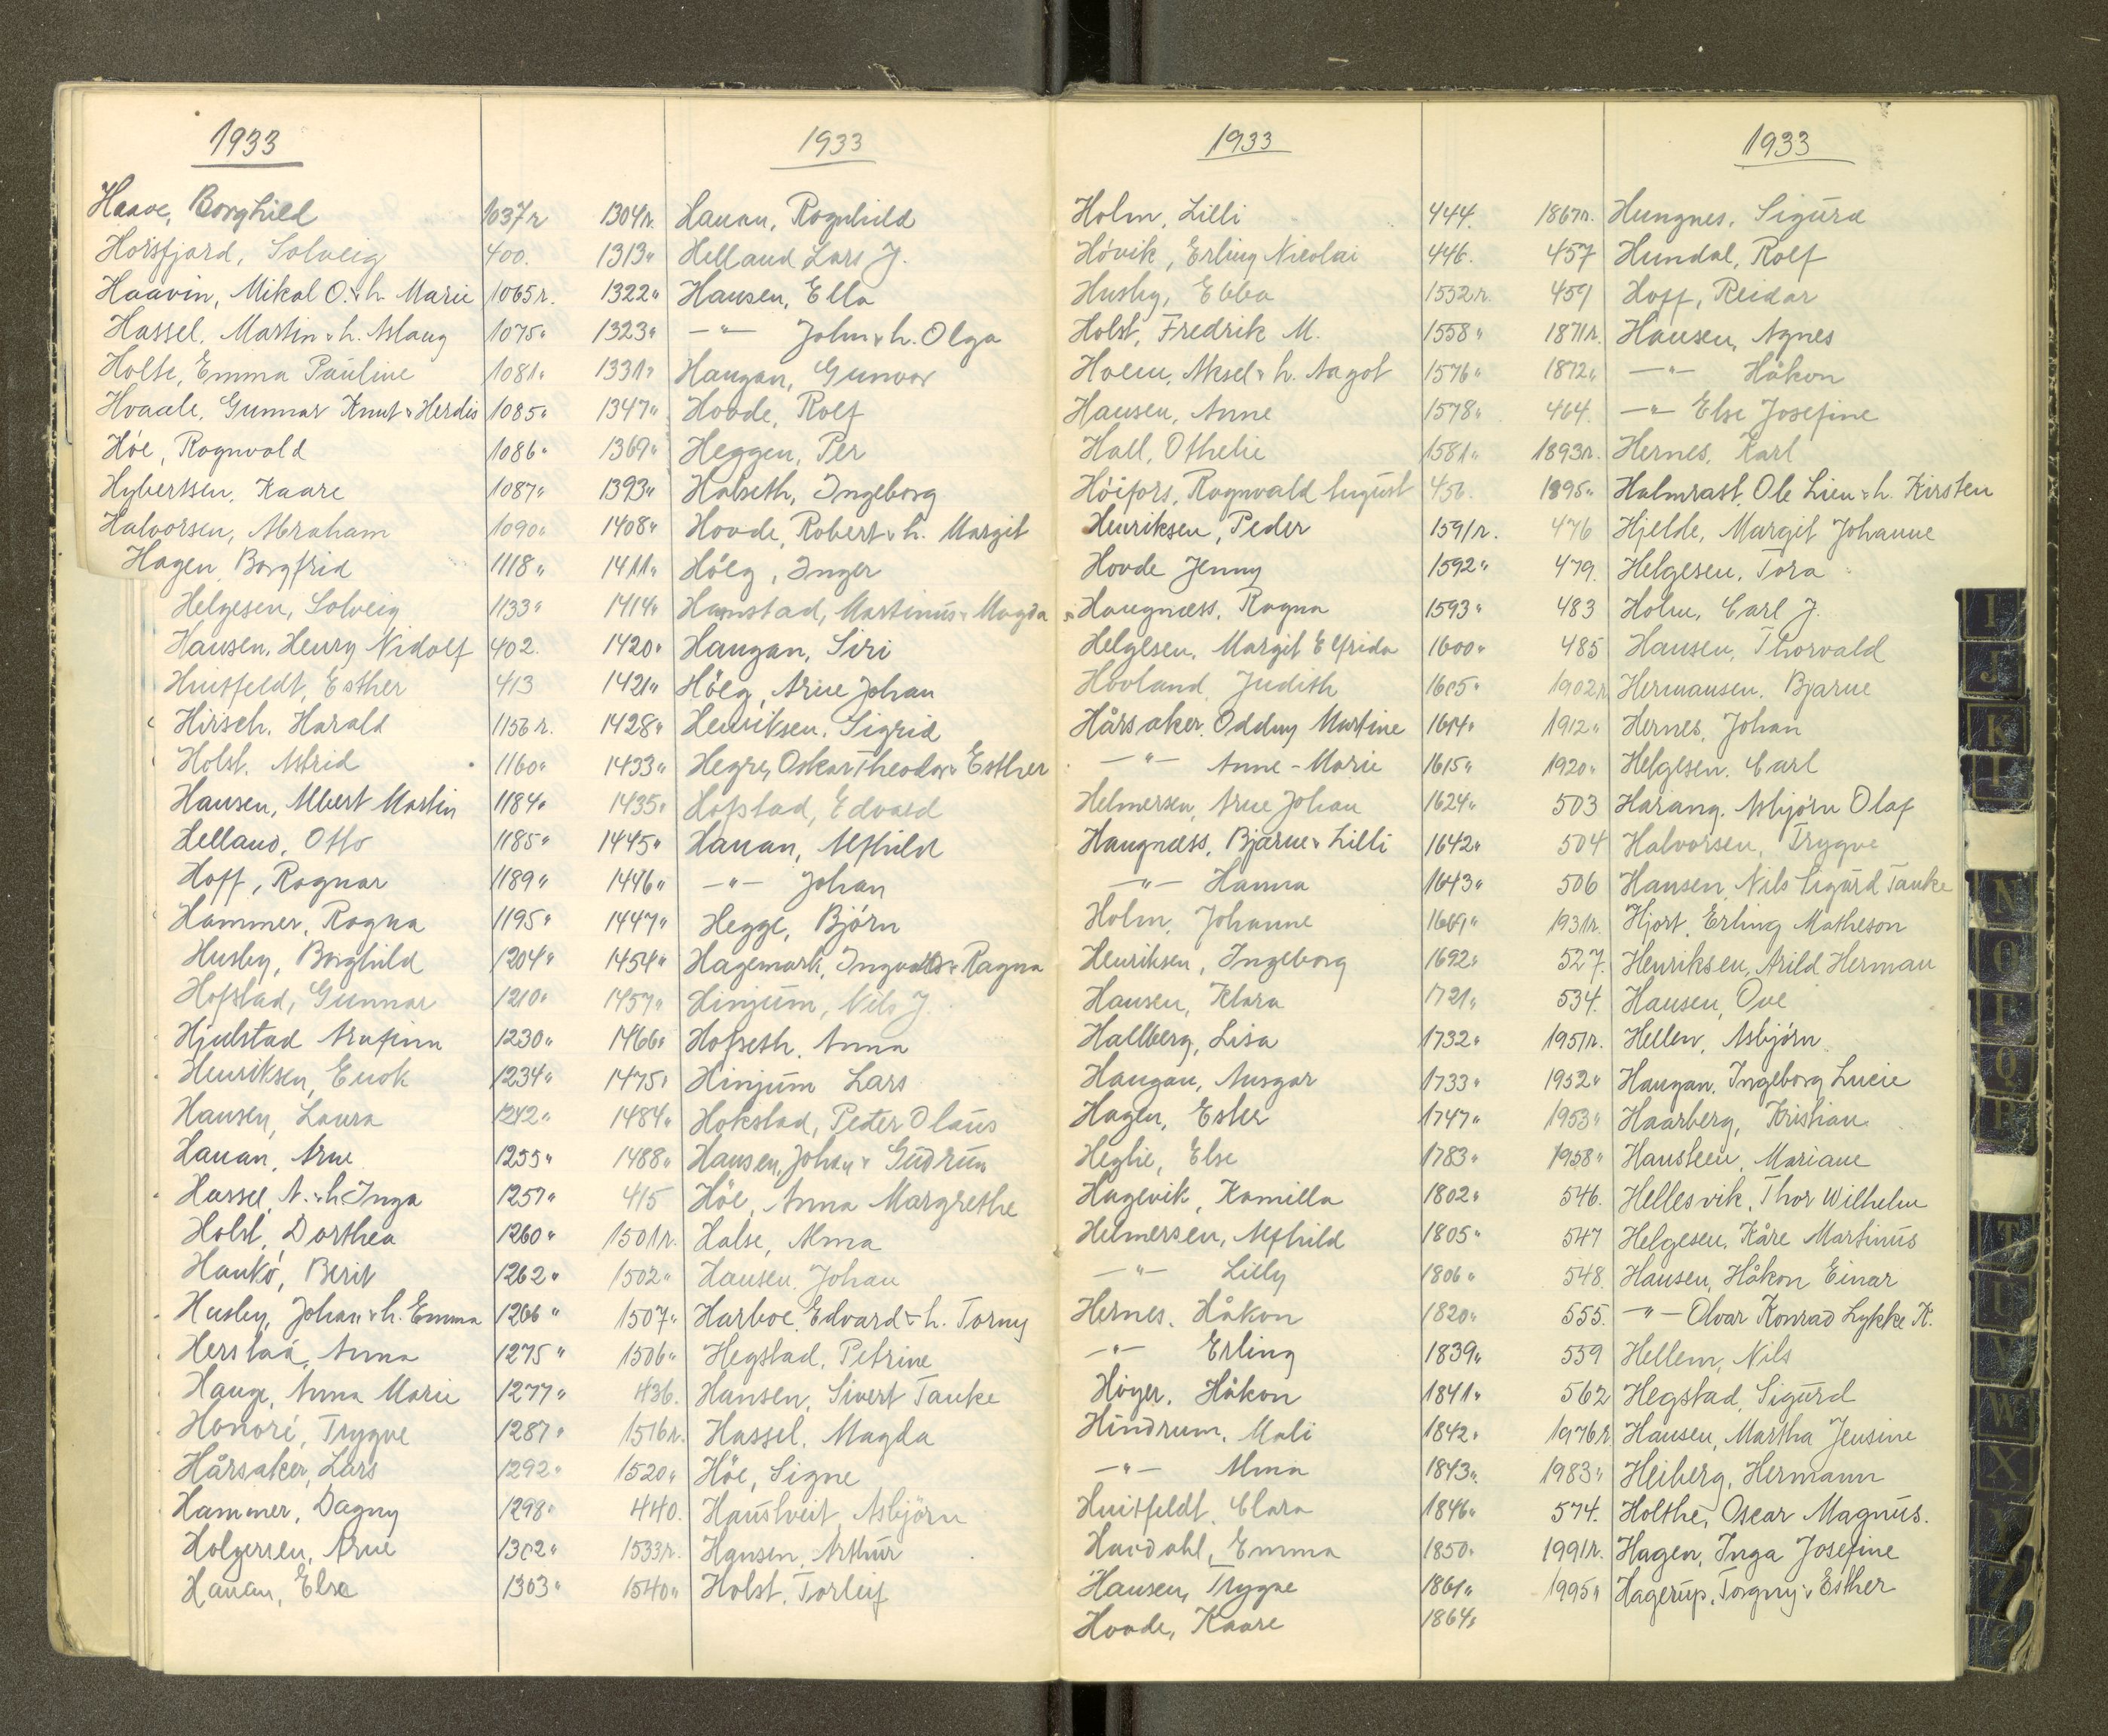 1933
Haave, Borghild 1037 r
Horsfjord, Solveig 400.
Haavin, Mikal O. & h. Marie 1065 r.
Hassel, Martin & h. Aslaug 1075 "
Holte, Emma Pauline 1081 "
Hvaale, Gunnar Knut & Herdis 1085 "
Höe, Ragnvald 1086 "
Hybertsen, Kaare 1087 "
Halvorsen, Abraham 1090 "
Hagen Borgfrid 1118 "
Helgesen, Solveig 1133 "
Hansen, Henry Nidolf 402.
Huitfeldt, Esther 413
Hirsch, Harald 1156 r.
Holst, Astrid 1160 "
Hansen, Albert Martin 1184 "
Helland, Otto 1185 "
Hoff, Ragnar 1189 "
Hammer, Ragna 1195 "
Husby, Borghild 1204 "
Hofstad, Gunnar 1210 "
Hjelstad Arnfinn 1230 "
Henriksen, Enok 1234 "
Hansen, Laura 1242 "
Hanan, Arne 1255 "
Hassel, A. & h. Inga 1257 "
Holst, Dorthea 1260 "
Hankö, Berit 1262 "
Husby, Johan & h. Emma 1266 "
Herstad, Anna 1275 "
Hauge, Anna Marie 1277 "
Honoré, Trygve 1287 "
Hårsaker, Lars 1292 "
Hammer, Dagny 1298 "
Holgersen, Arne 1302 "
Hanan, Elsa 1303 "
1933
1304 r. Hanan, Ragnhild
1313 " Helland Lars J.
1322 " Hansen, Ella
1323 " — " — John & h. Olga
1331 " Haugan, Gunvor
1347 " Hovde, Rolf
1369 " Heggen, Per
1393 " Halseth, Ingeborg
1408 " Hovde, Robert & h. Margit
1411 " Höeg, Inger
1414 " Hamstad, Martinus & Magda
1420 " Haugan, Siri
1421 " Höeg, Arne Johan
1428 " Henriksen, Sigrid
1433 " Hegre, Oskar Theodor & Esther
1435 " Hofstad, Edvard
1445 " Hanan, Alfhild
1446 " — " — Johan
1447 " Hegge, Björn
1454 " Hagemark, Ingvald & Ragna
1457 " Hinjum, Nils J.
1466 " Hofseth, Anna
1475 " Hinjum Lars
1484 " Hokstad, Peter Olaus
1488 " Hansen, Johan & Gudrun
415 Höe, Anna Margrethe
1501 r. Halse, Alma
1502 " Hansen, Johan
1507 " Harboe, Edvard & h. Torny
1506 " Hegstad, Petrine
436. Hansen, Sivert Tanke
1516 r. Hassel, Magda
1520 " Höe, Signe
440. Haustveit, Asbjörn
1533 r. Hansen, Arthur
1540 " Holst, Torleif
1933
Holm, Lilli 444.
Hövik, Erling Nicolai 446.
Husby, Ebba 1552 r.
Holst, Fredrik M. 1558 "
Holm, Aksel & h. Aagot 1576 "
Hansen, Anne 1578 "
Hall, Othelie 1581 "
Höifors, Ragnvald August 456.
Henriksen, Peder 1591 r.
Hovde Jenny 1592 "
Haugnæss, Ragna 1593 "
Helgesen, Margit Elfrida 1600 "
Hovland, Judith 1605 "
Hårsaker, Oddny Martine 1614 "
— " — Anne-Marie 1615 "
Helmersen, Arne Johan 1624 "
Haugnæss, Bjarne & Lilli 1642 "
— " — Hanna 1643 "
Holm, Johanne 1669 "
Henriksen, Ingeborg 1692 "
Hansen, Klara 1721 "
Hallberg, Lisa 1732 "
Haugan, Ansgar 1733 "
Hagen, Ester 1747 "
Heglie, Else 1783 "
Hagevik, Kamilla 1802 "
Helmersen, Alfhild 1805 "
— " — Lilly 1806 "
Hernes, Håkon 1820 "
— " — Erling 1839 "
Höyer, Håkon 1841 "
Hindrum, Mali 1842 "
— " — Alma 1843 "
Huitfeldt, Clara 1846 "
Havdahl, Emma 1850 "
Hansen, Trygve 1861 "
Hovde, Kaare 1864 "
1933
1867 r. Hungnes, Sigurd
457 Hundal, Rolf
459 Hoff, Reidar
1871 r. Hansen, Agnes
1872 " — " — Håkon
464. — " — Else Josefine
1893 r. Hernes, Karl
1895 " Halmrast, Ole Lien & h. Kirsten
476 Hjelde, Margit Johanne
479. Helgesen, Tora
483 Holm, Carl J.
485 Hansen, Thorvald
1902 r. Hermansen, Bjarne
1912 " Hernes, Johan
1920 " Helgesen, Carl
503 Harang, Asbjørn Olaf
504 Halvorsen, Trygve
506 Hansen, Nils Sigurd Tanke
1931 r. Hjort, Erling Matheson
527. Henriksen, Arild Herman
534. Hansen, Ove
1951 r. Hellen, Asbjörn
1952 " Haugan, Ingeborg Lucie
1953 " Haarberg, Kristian
1958 " Hansteen, Mariane
546. Hellesvik, Thor Wilhelm
547 Helgesen, Kåre Martinus
548. Hansen, Håkon Einar
555. — " — Olvar Konrad Lykke K.
559 Hellem, Nils
562 Hegstad, Sigurd
1976 r. Hansen, Martha Jensine
1983 " Heiberg, Hermann
574. Holthe, Oscar Magnus.
1991 r. Hagen, Inga Josefine
1995 " Hagerup, Torgny & Esther
I
J
K
L
N
O
P
Q
R
T
U
V
W
X
Y